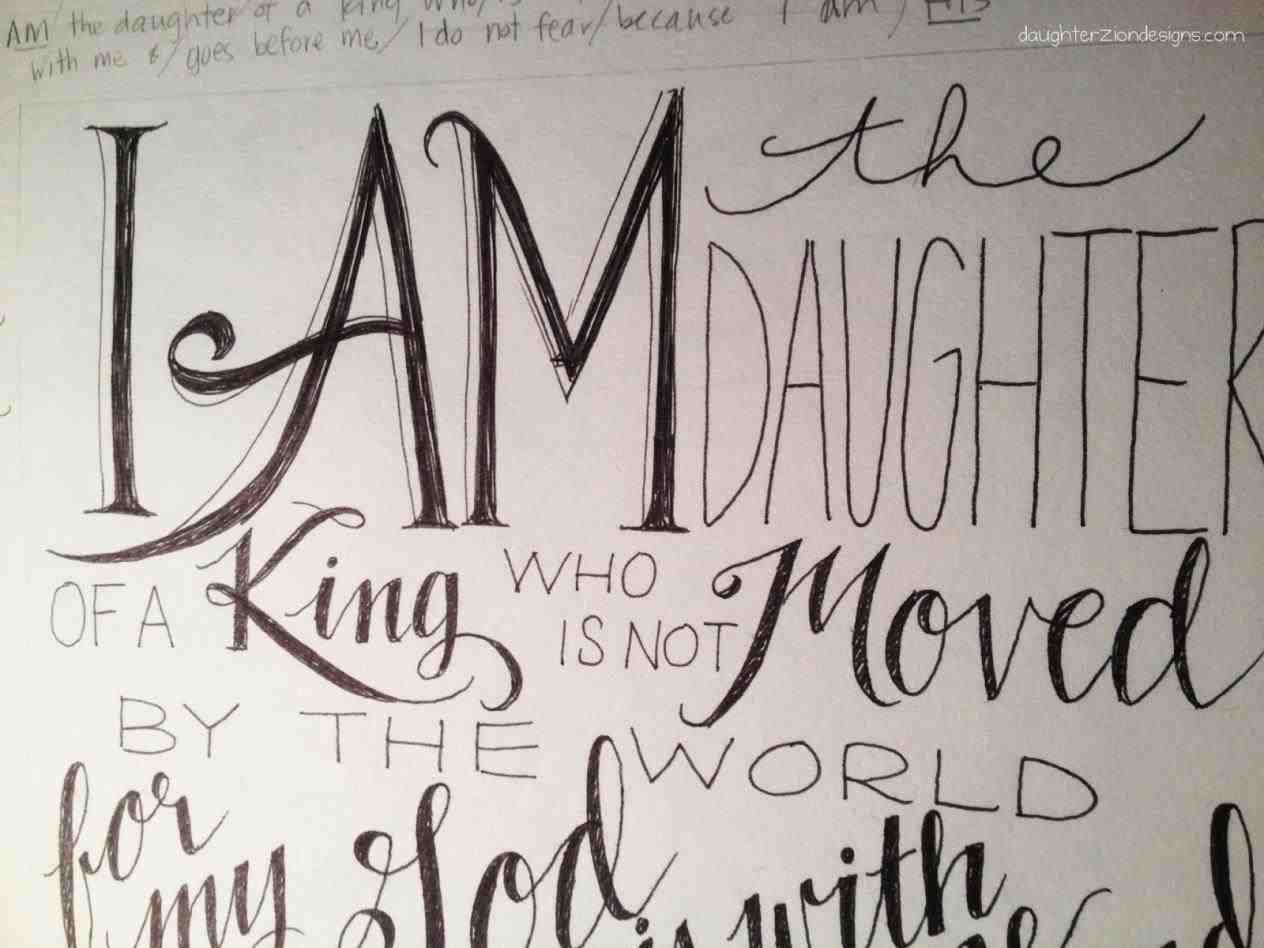 AM / the daughter of a king who /
with me & / goes before me / I do not fear / because I am / HIS
daughterZiondesigns.com
I AM the
DAUGHTER
OF A King WHO IS NOT Moved
BY THE WORLD
for
my God
is with